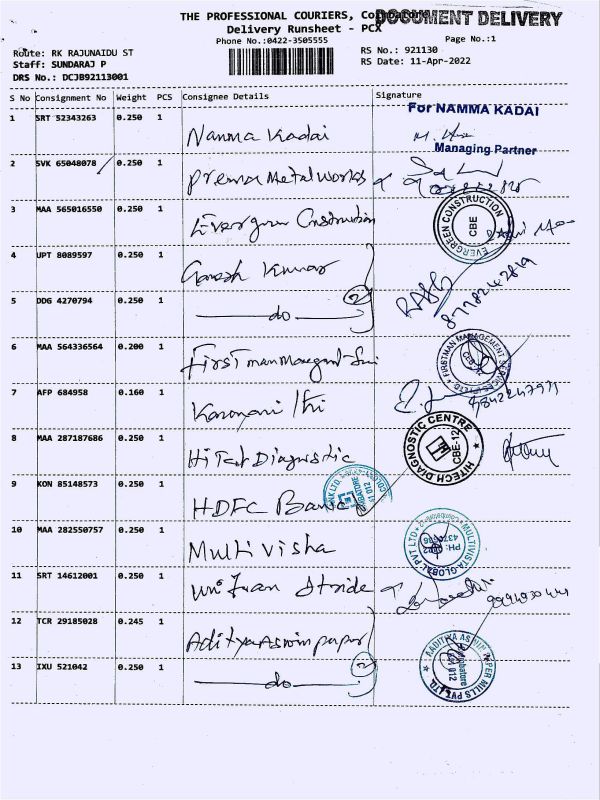 THE PROFESSIONAL COURIERS, Coimbatore
DOCUMENT DELIVERY
Delivery Runsheet - PCX
Phone No.:0422-3505555
Page No.:1
Route: RK RAJUNAIDU ST
RS No.: 921130
Staff: SUNDARAJ P
RS Date: 11-Apr-2022
DRS No.: DCJB92113001
S No Consignment No Weight PCS Consignee Details Signature
1 SRT 52343263 0.250 1 Namma Kadai
For NAMMA KADAI
Managing Partner
2 SVK 65048078 0.250 1 Premier Metal Works
3 MAA 565016550 0.250 1 Evergreen Construction
EVERGREEN CONSTRUCTION CBE
4 UPT 8089597 0.250 1 Ganesh Kumar
5 DDG 4270794 0.250 1 do 2
8778242819
6 MAA 564336564 0.200 1 First man Management
FIRSTMAN MANAGEMENT SERVICES
7 AFP 684958 0.160 1
9842247971
8 MAA 287187686 0.250 1 Hi Tech Diagnostic
HITECH DIAGNOSTIC CENTRE CBE-12
9 KON 85148573 0.250 1 HDFC Bank
10 MAA 282550757 0.250 1 Multi visha
MULTIVISTA GLOBAL PVT LTD
11 SRT 14612001 0.250 1
12 TCR 29185028 0.245 1 Aditya Aswin paper
13 IXU 521042 0.250 1 do 2
AADITYA ASWIN PAPER MILLS PVT LTD